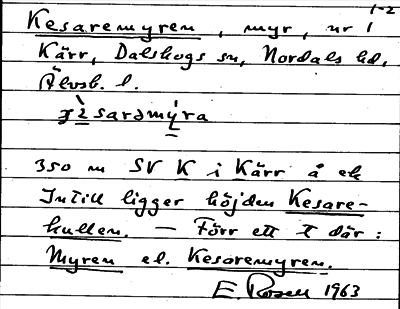 1-2
Kesaremyren, myr, nr 1
Kärr, Dalskogs sn, Nordals hd,
Älvsb. l.
sarəmýra
350 m SV K i Kärr å ek
Intill ligger höjden Kesare-
kullen. — Förr ett t där:
Myren el. Kesaremyren.
E. Rosell 1963